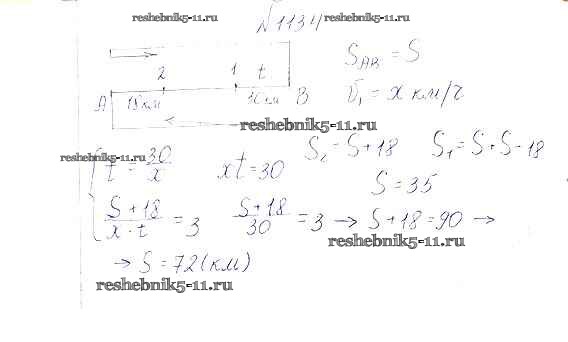 reshebnik5-11.ru
№1134
reshebnik5-11.ru
2 1 t
A 18км 30км B
S_AB = S
v₁ = x км/ч
reshebnik5-11.ru
S₂ = S + 18 S₁ = S + S - 18
reshebnik5-11.ru
t = 30/x xt = 30 S = 35
(S + 18)/(x · t) = 3 (S + 18)/30 = 3 → S + 18 = 90 →
reshebnik5-11.ru
→ S = 72 (км)
reshebnik5-11.ru